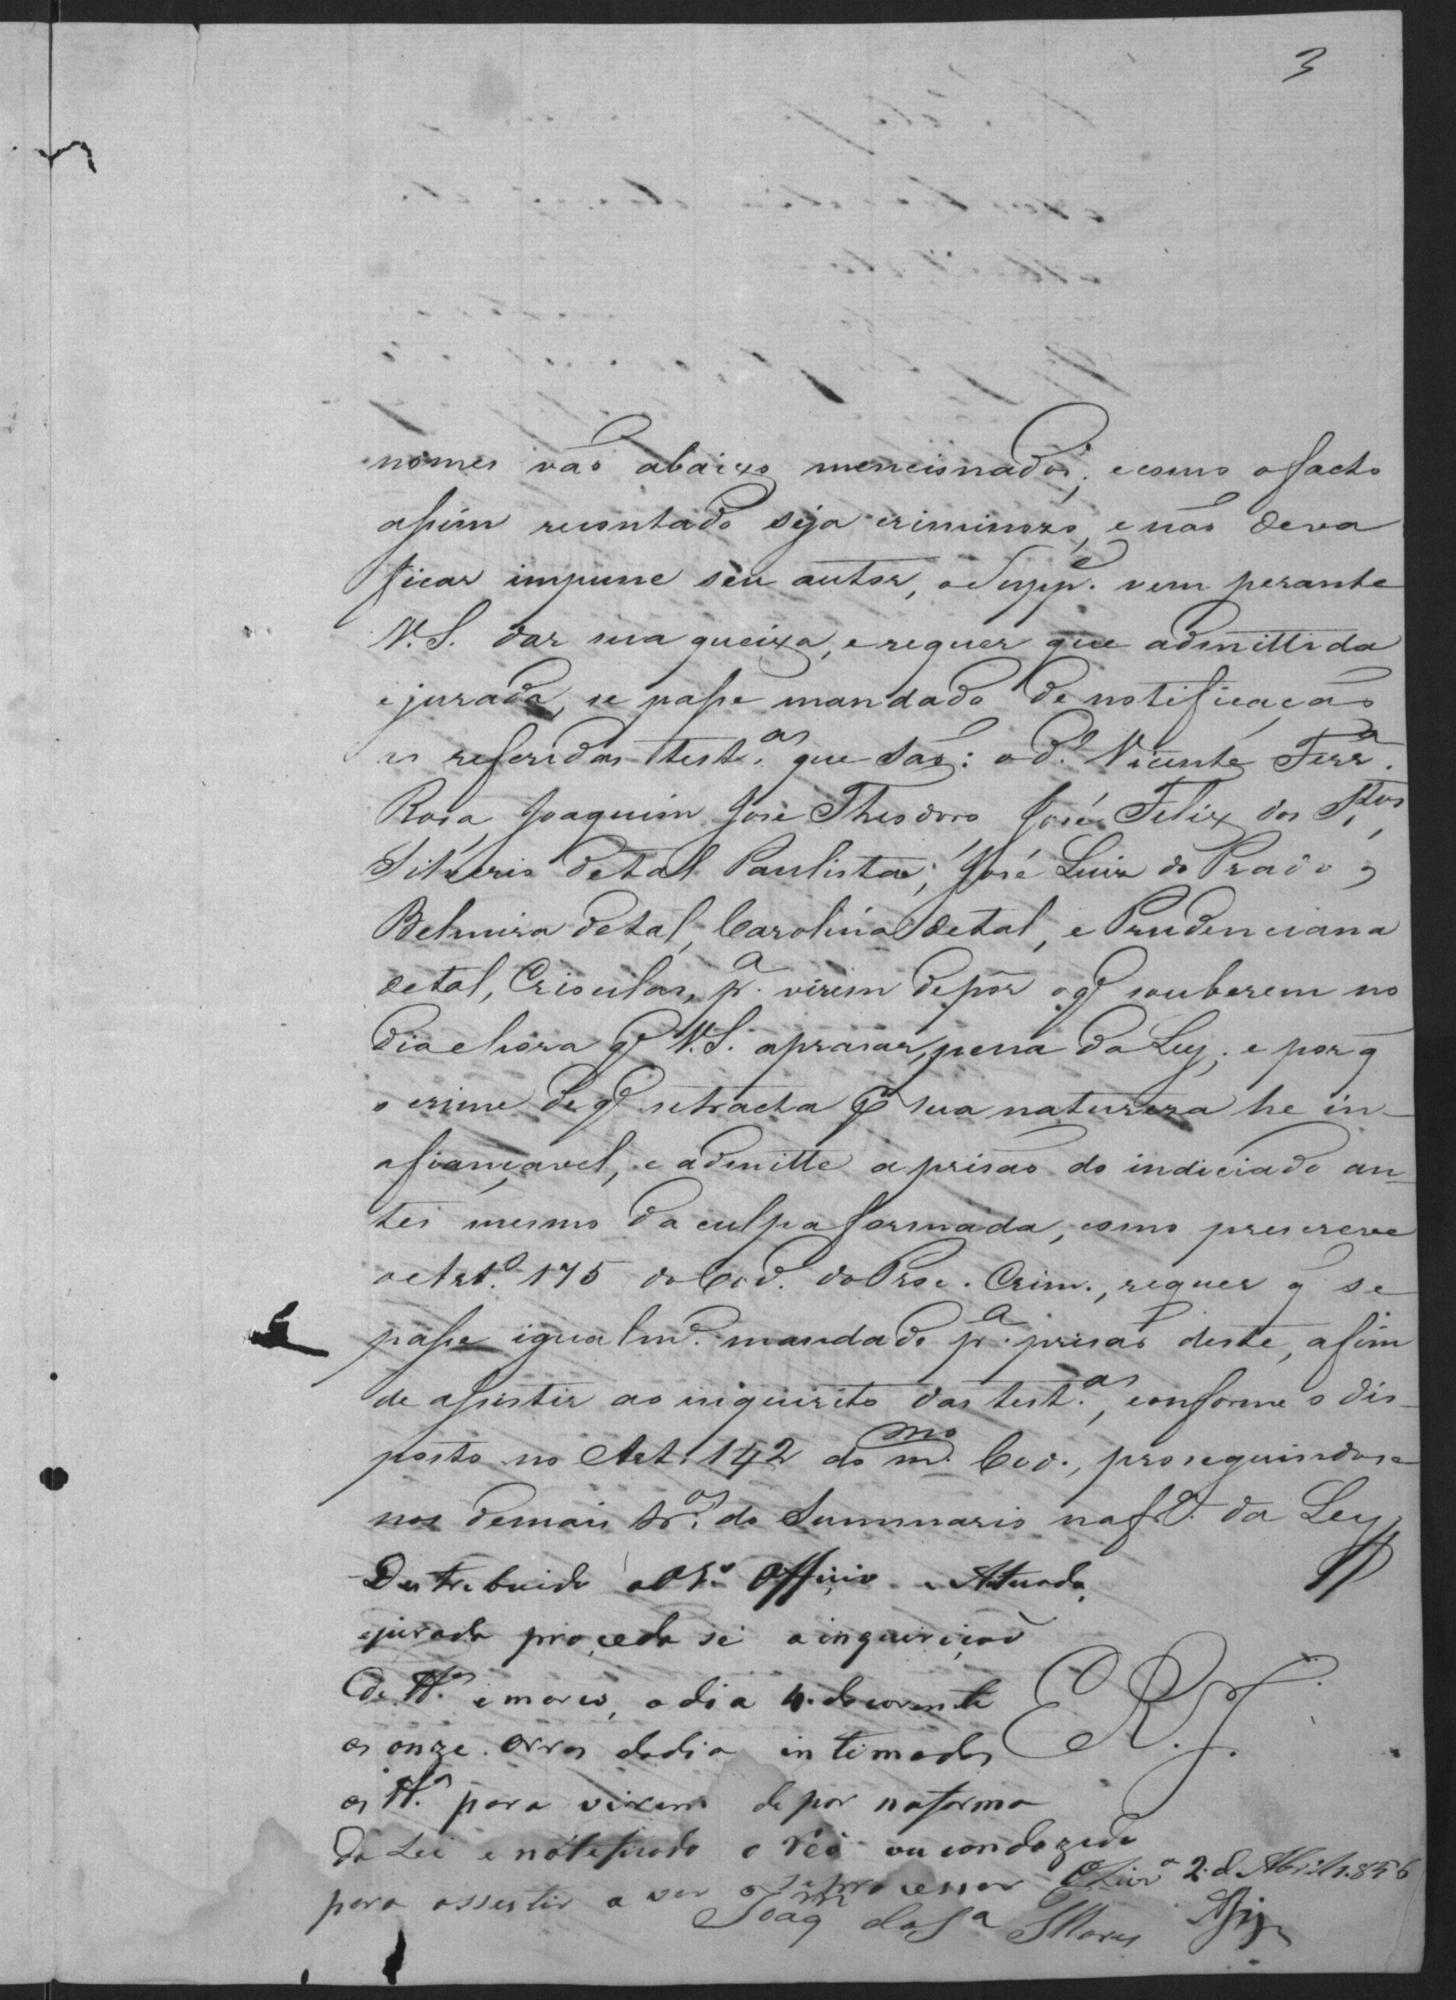 3
nomes vaõ abaixo mencionados; e como o facto
assim recontado seja criminozo, e naõ deva
ficar impune seu autor, o Supp.e vem perante
V.S. dar sua queixa, e requer que admittida
e jurada, se passe mandado de notificaçaõ
as referidas test.as que saõ: o d.o Vicente Ferr.a
Rosa, Joaquim José Theodoro, José Felix dos S.tos,
Silverio de tal Paulista; José Luiz do Prado,
Belmira de tal, Carolina de tal, e Prudenciana
de tal, Crioulas, p.a virem depôr o q̃ souberem no
dia e hora q̃ V.S. aprasar, pena da Ley; e por q̃
o crime de q̃ se tracta p̃ sua natureza he in-
afiançavel, e admitte a prisaõ do indiciado an-
tes mesmo da culpa formada, como prescreve
o Art.o 175 do Cod. do Proc. Crim., requer q̃ se
passe igualm.e mandado p.a prisaõ deste, afim
de assistir ao inquirito das test.as, conforme o dis-
posto no Art. 142 do m.mo Cod., proseguindose
nos demais tr.os do Summario na f.a da Ley
Destribuido ao 1.o Officio e Atuada,
e jurada proceda se a inquiriçaõ
de tt.as e marco, o dia 4 do corrente
as onze orras do dia intimadas
as tt.as para virem depor na forma
da Lei e noteficado o réo ou condozido
para assestir a ver se processar 2 de Abril 1856
E.R.J.
Joaq.m da S.a